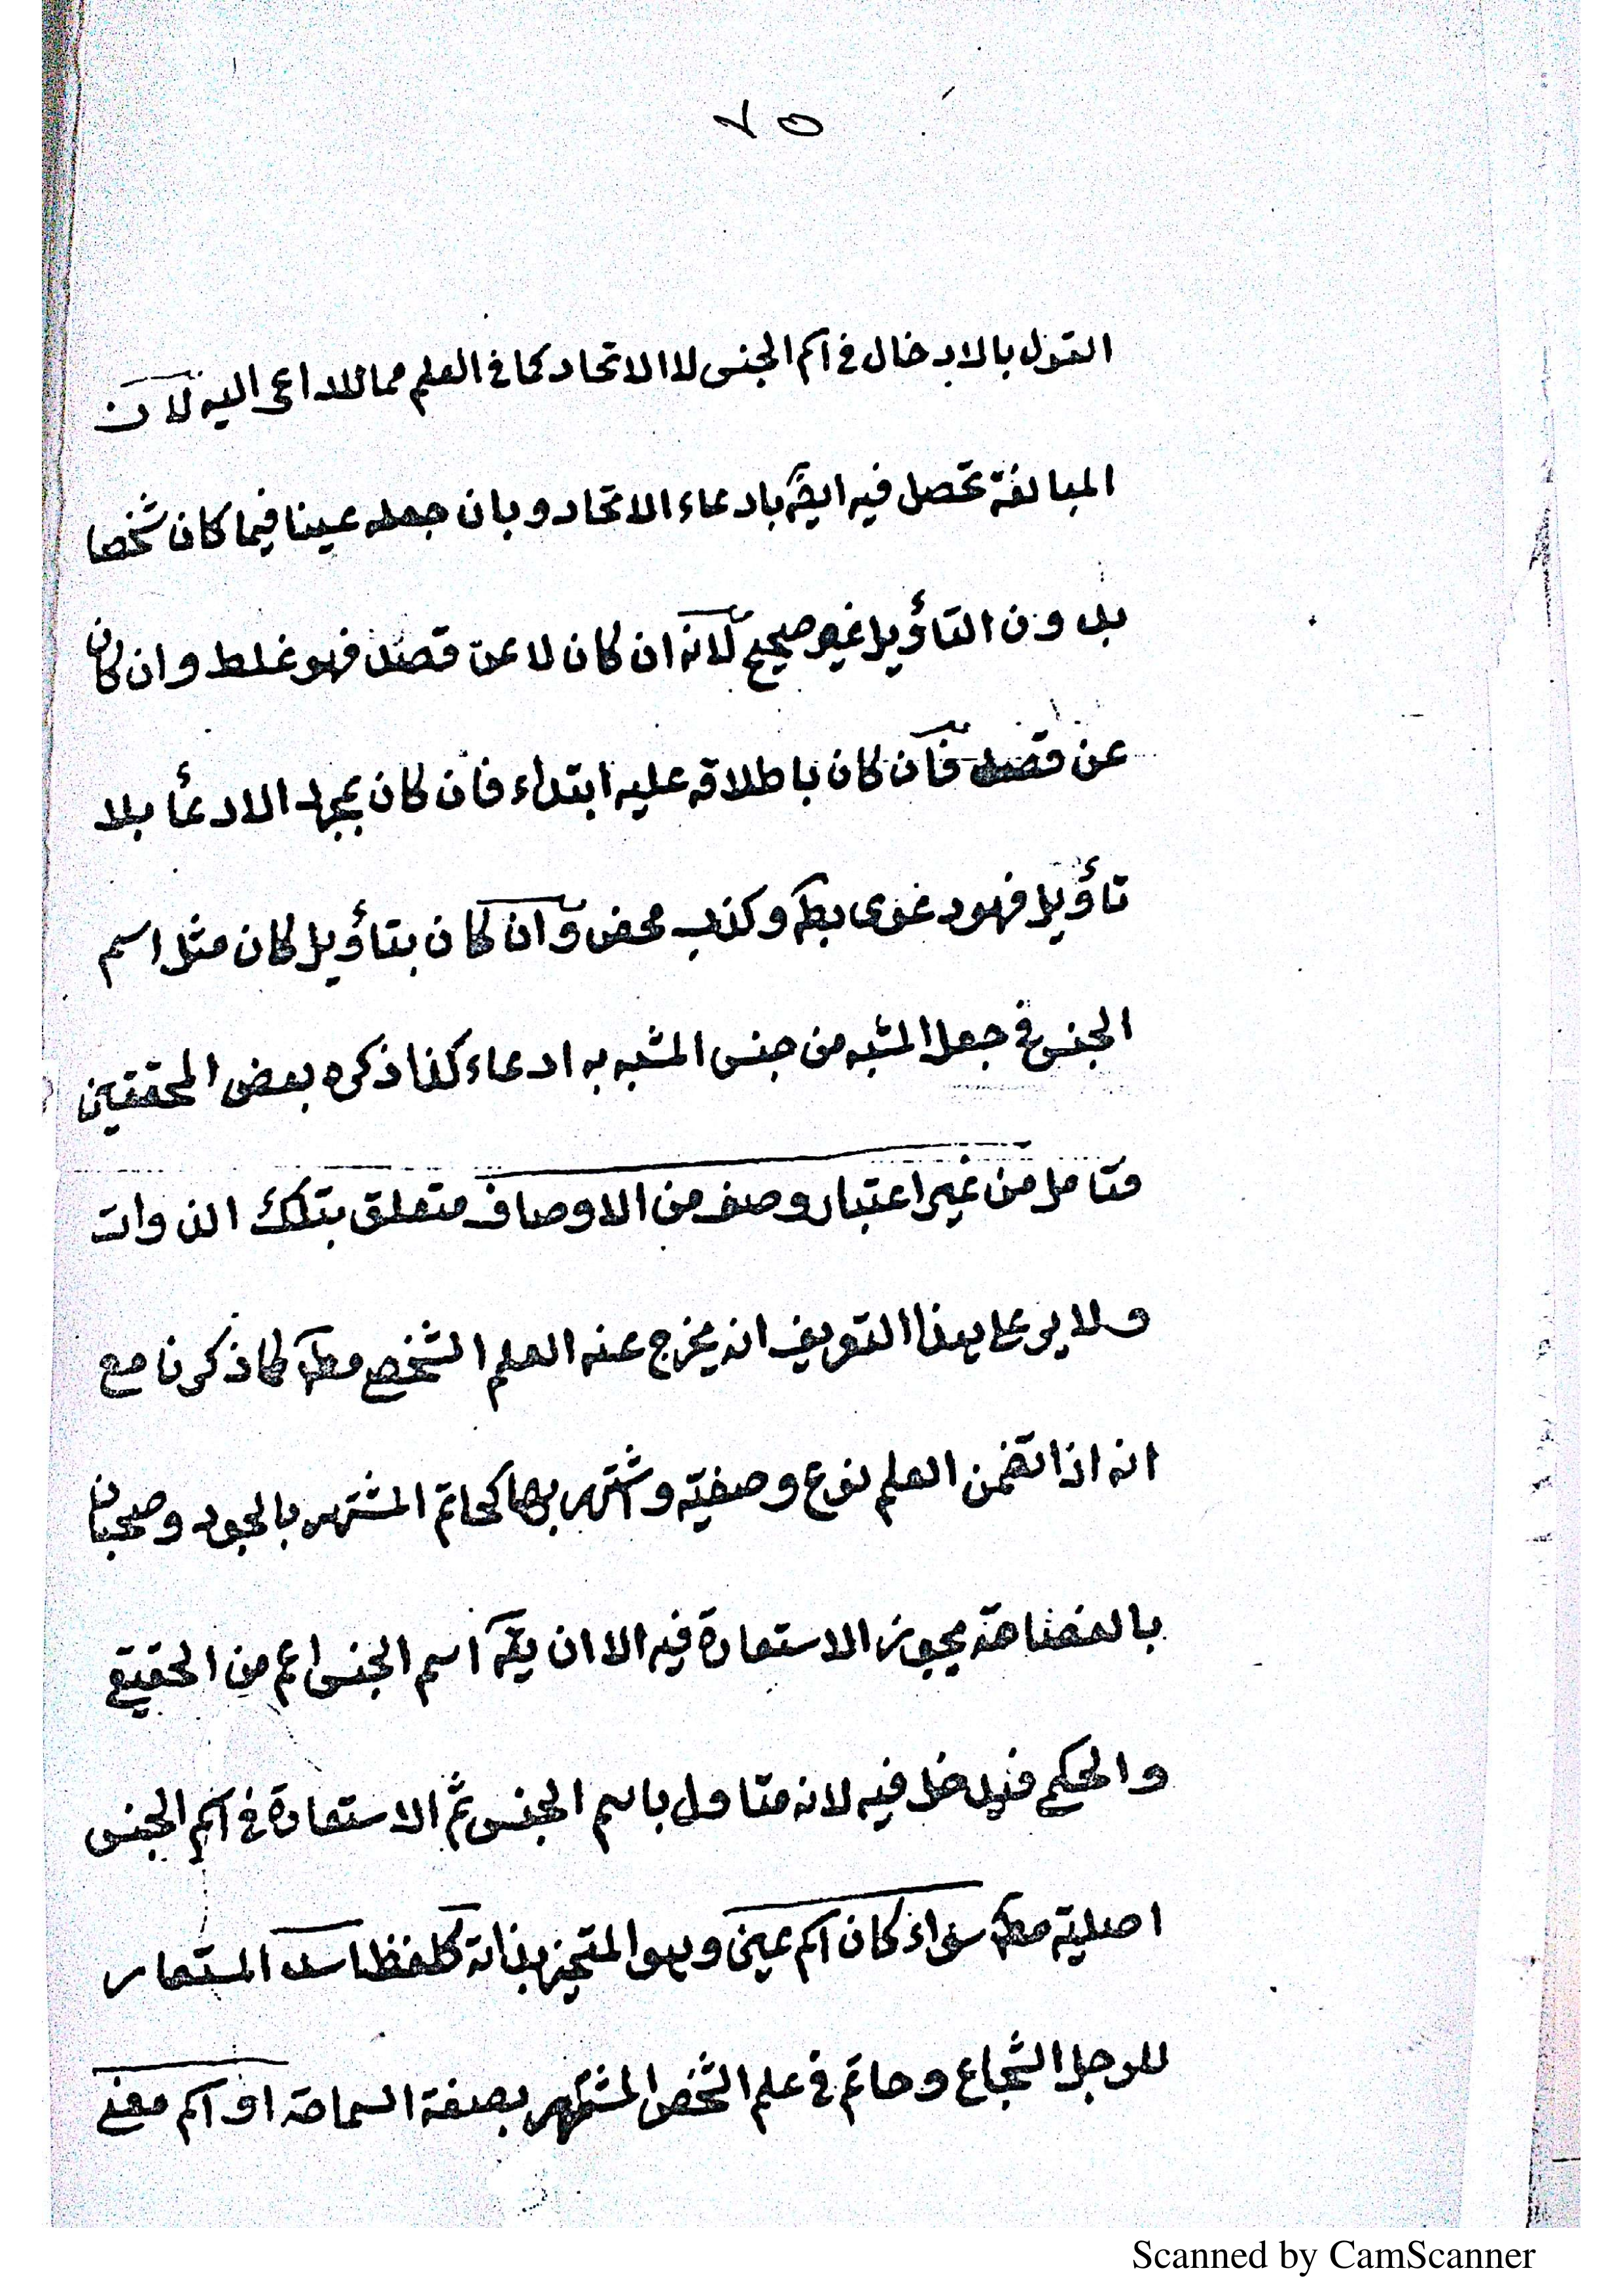 ٧٥
القول بالادخال في اسم الجنس لا الاتحاد كما في العلم مما لا داعي اليه لان
المبالغة تحصل فيه ايضً بادعاء الاتحاد وبان جعله عينا فيما كان شخصا
بدون التأويل غير صحيح لانه ان كان لا عن قصد فهو غلط وان كان
عن قصد فان كان باطلاقه عليه ابتداء فان كان بمجرد الادعأ بلا
تأويل فهو دعوى بط وكذب محض وان كان بتأويل كان مثل اسم
الجنس في جعل المشبه من جنس المشبه به ادعاء كذا ذكره بعض المحققين
فتامل من غير اعتبار وصف من الاوصاف متعلق بتلك الذوات
ولا يرد على هذا التعريف انه يخرج عنه العلم الشخص مط كما ذكرنا مع
انه اذا تضمن العلم نوع وصفية واشتهر بها كحاتم المشتهر بالجود وسحبان
بالفصاحة يجوز الاستعارة فيه الا ان يقً اسم الجنس اعم من الحقيقي
والحكمي فيدخل فيه لانه متاول باسم الجنس ثم الاستعارة في اسم الجنس
اصلية مط سواء كان اسم عين وهو المتحيز بذاته كلفظ اسد المستعار
للرجل الشجاع وحاتم في علم الشخص المشتهر بصفة السماحة او اسم معنى
Scanned by CamScanner